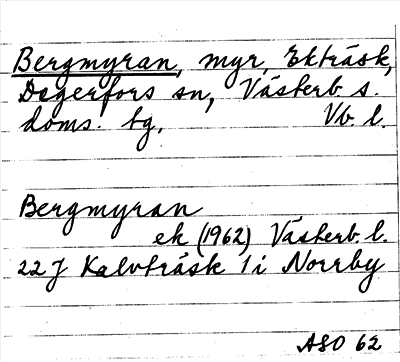 Bergmyran, myr, Ekträsk,
Degerfors sn, Västerb. s.
doms. tg, Vb. l.
Bergmyran
ek (1962) Västerb. l.
22J Kalvträsk 1 i Norrby
ASO 62